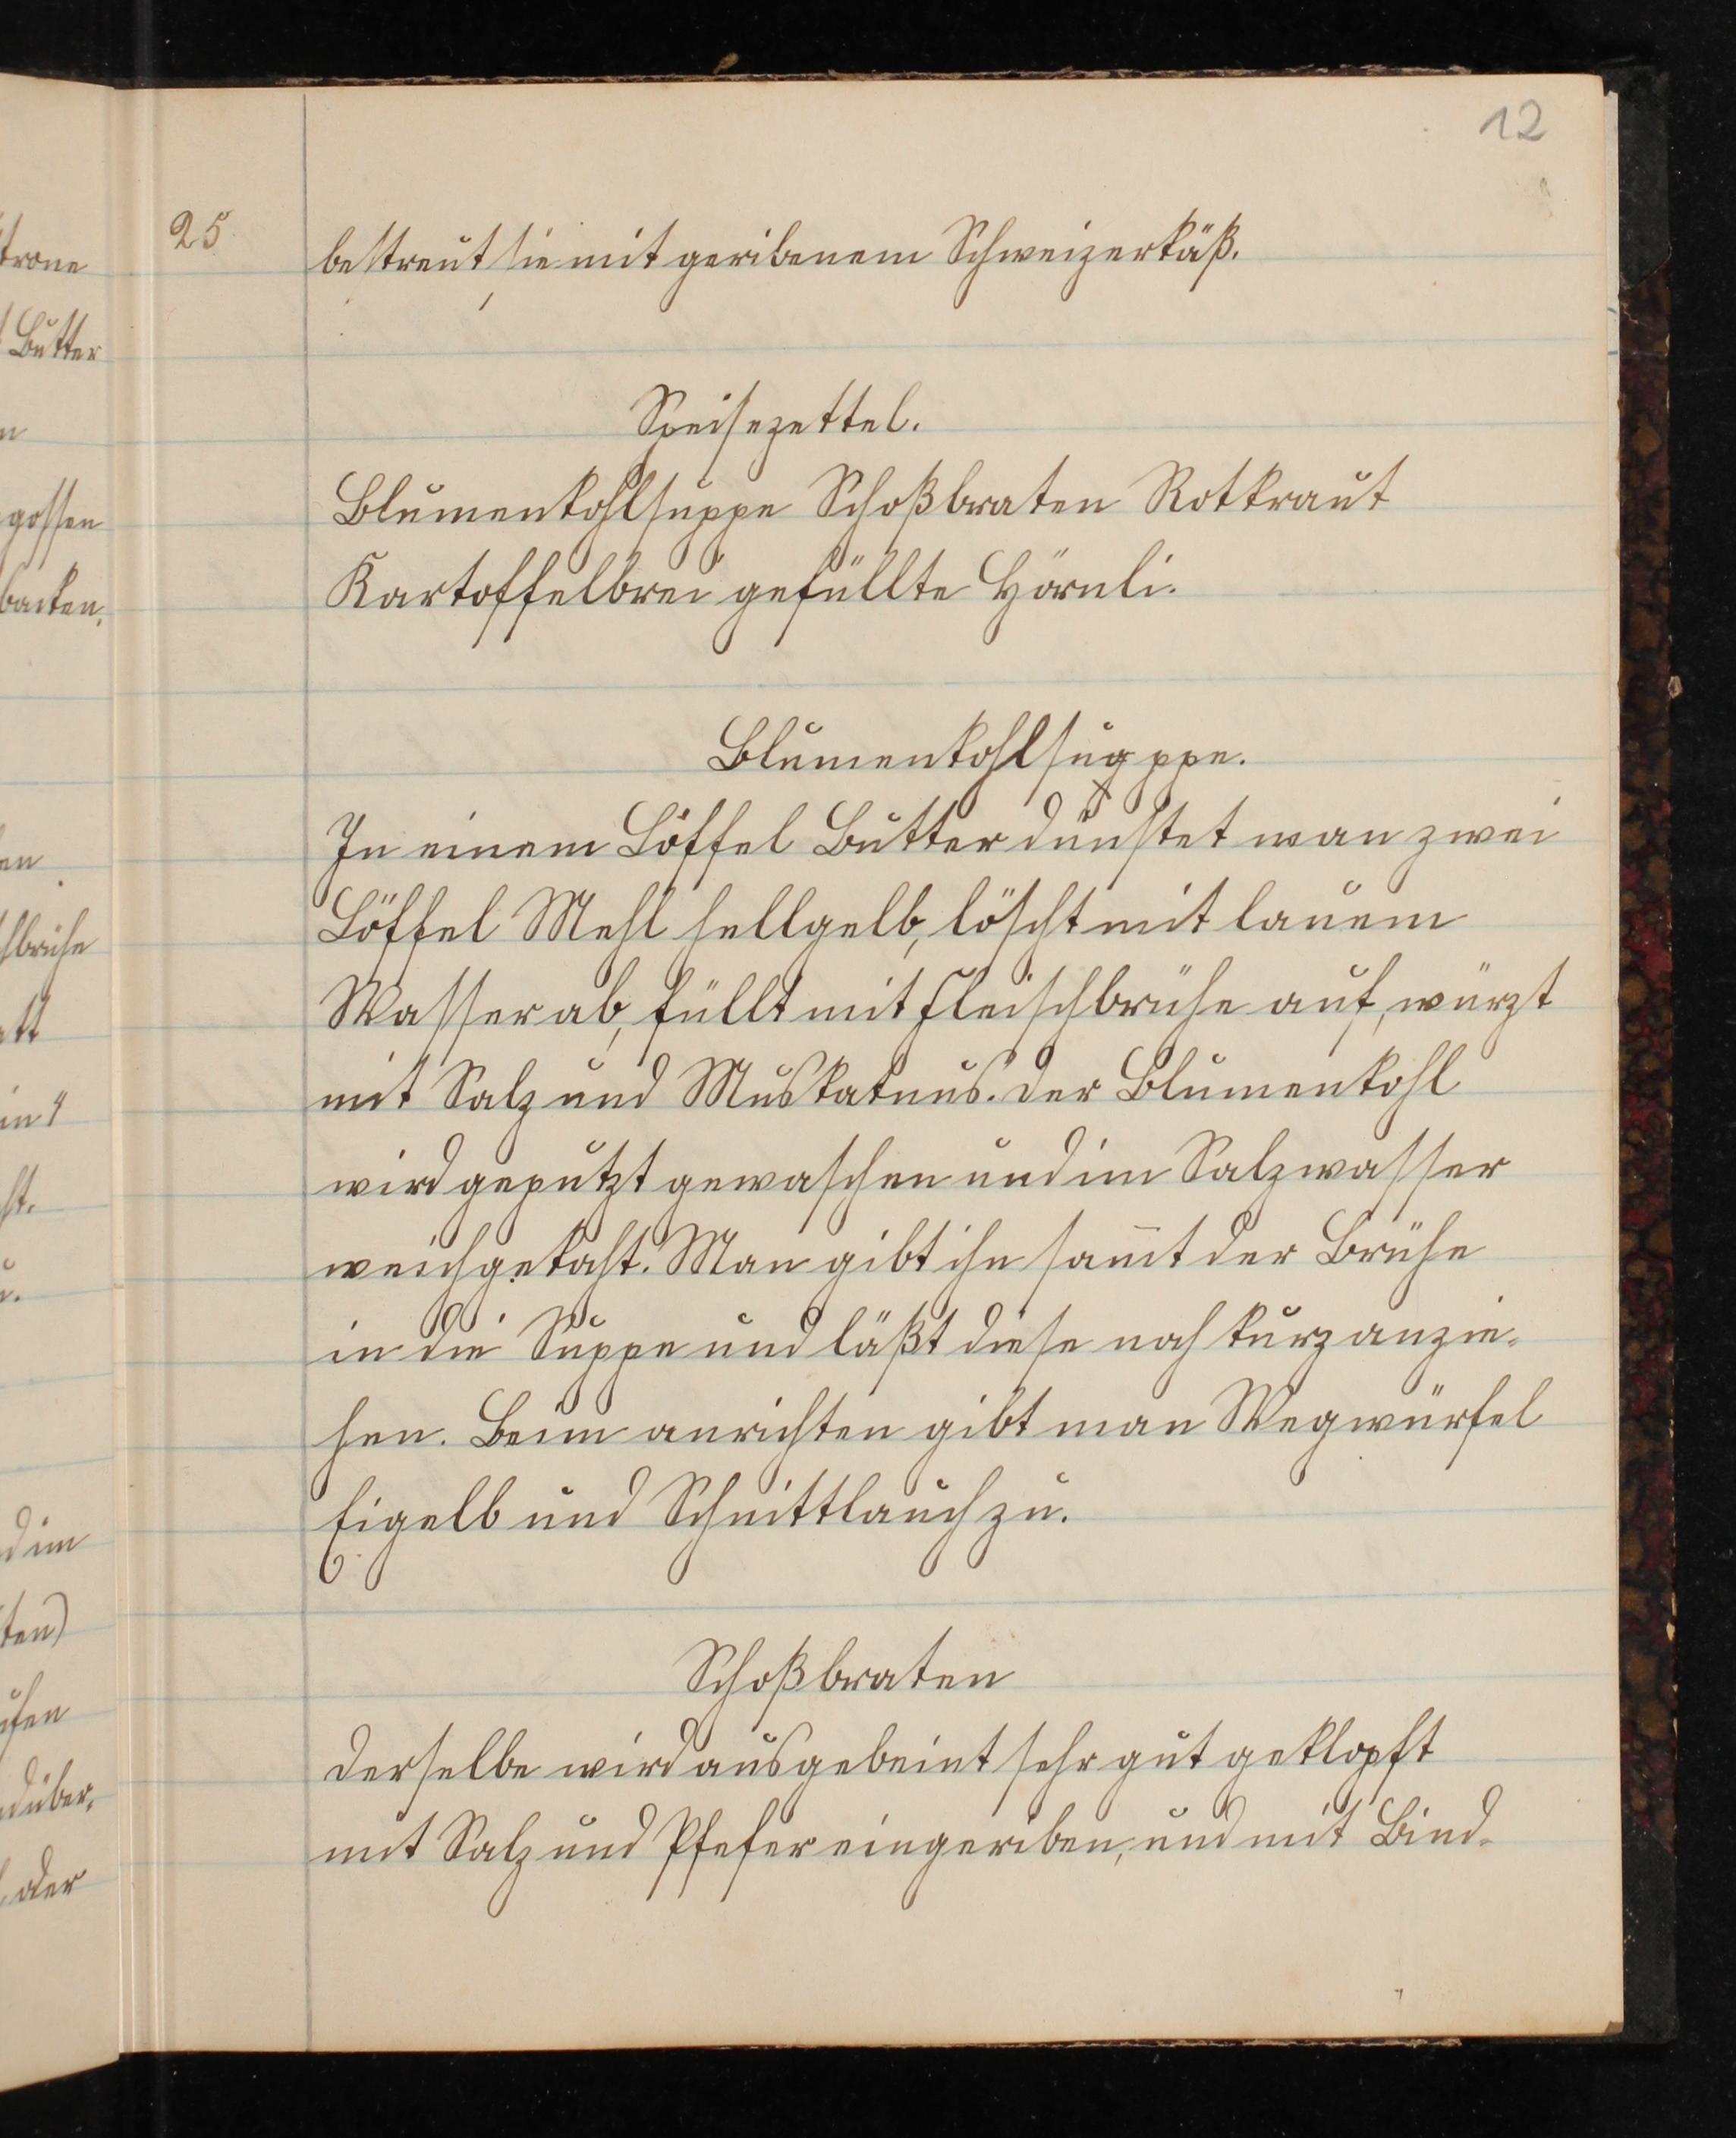 12
25
bestreut sie mit geribenem Schweizerkäß.
Speisezettel.
Blumenkohlsuppe Schoßbraten Rotkraut
Kartoffelbrei gefüllte Hörnli.
Blumenkohlsugppe.
In einem Löffel Butter dünstet man zwei
Löffel Mehl hellgelb, löscht mit lauem
Wasser ab, füllt mit Fleischbrühe auf, würzt
mit Salz und Muskatnus. Der Blumenkohl
wird geputzt gewaschen und im Salzwasser
weichgekocht. Man gibt ihn sam̄t der Brühe
in die Suppe und läßt diese noch kurz anzie-
hen. Beim anrichten gibt man Wegwürfel
Eigelb und Schnittlauch zu.
Schoßbraten
Derselbe wird ausgebeint sehr gut geklopft
mit Salz und Pfefer eingeriben, und mit Bind-
trone
Butter
gossen
backen.
brühe
in 4
d im
ten)
über,
oder